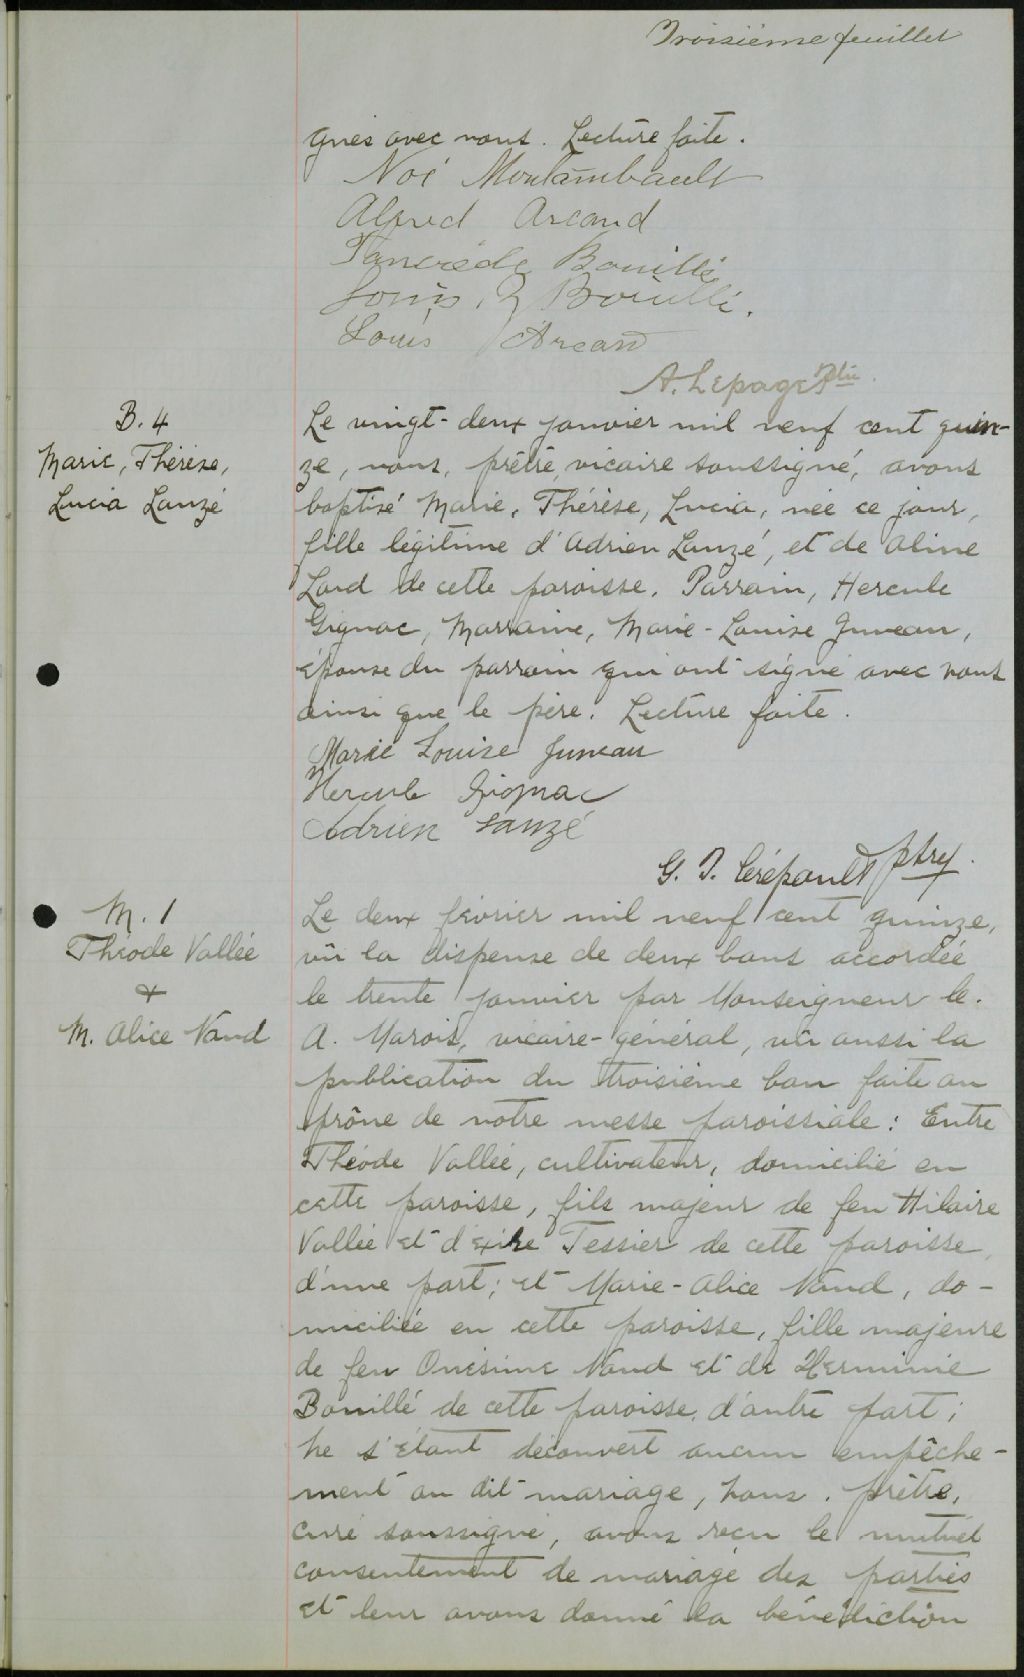 Troisième feuillet
gnés avec nous. Lecture faite.
Noé Montambault
Alfred Arcand
Tancrède Bouillé
Louis. Bouillé.
Louis Arcand
A. Lepage Ptre.
B. 4
Marie, Thérèse,
Lucia Lanzé
Le vingt-deux janvier mil neuf cent quin-
ze, nous, prêtre, vicaire soussigné, avons
baptisé Marie, Thérèse, Lucia, née ce jour,
fille légitime d'Adrien Lanzé, et de Aline
Lord de cette paroisse. Parrain, Hercule
Gignac, Marraine, Marie-Louise Juneau,
épouse du parrain qui ont signé avec nous
ainsi que le père. Lecture faite.
Marie Louise Juneau
Hercule Gignac
Adrien Lanzé
G. T. Crépault ptre.
M. 1
Théode Vallée
+
M. Alice Naud
Le deux février mil neuf cent quinze,
vû la dispense de deux bans accordée
le trente janvier par Monseigneur
A. Marois, vicaire-général, vû aussi la
publication du troisième ban faite au
prône de notre messe paroissiale: Entre
Théode Vallée, cultivateur, domicilié en
cette paroisse, fils majeur de feu Hilaire
Vallée et d'Exire Tessier de cette paroisse,
d'une part; et Marie-Alice Naud, do-
miciliée en cette paroisse, fille majeure
de feu Onésime Naud et de Herminie
Bouillé de cette paroisse, d'autre part;
ne s'étant découvert aucun empêche-
ment au dit mariage, nous, prêtre,
curé soussigné, avons reçu le mutuel
consentement de mariage des parties
et leur avons donné la bénédiction